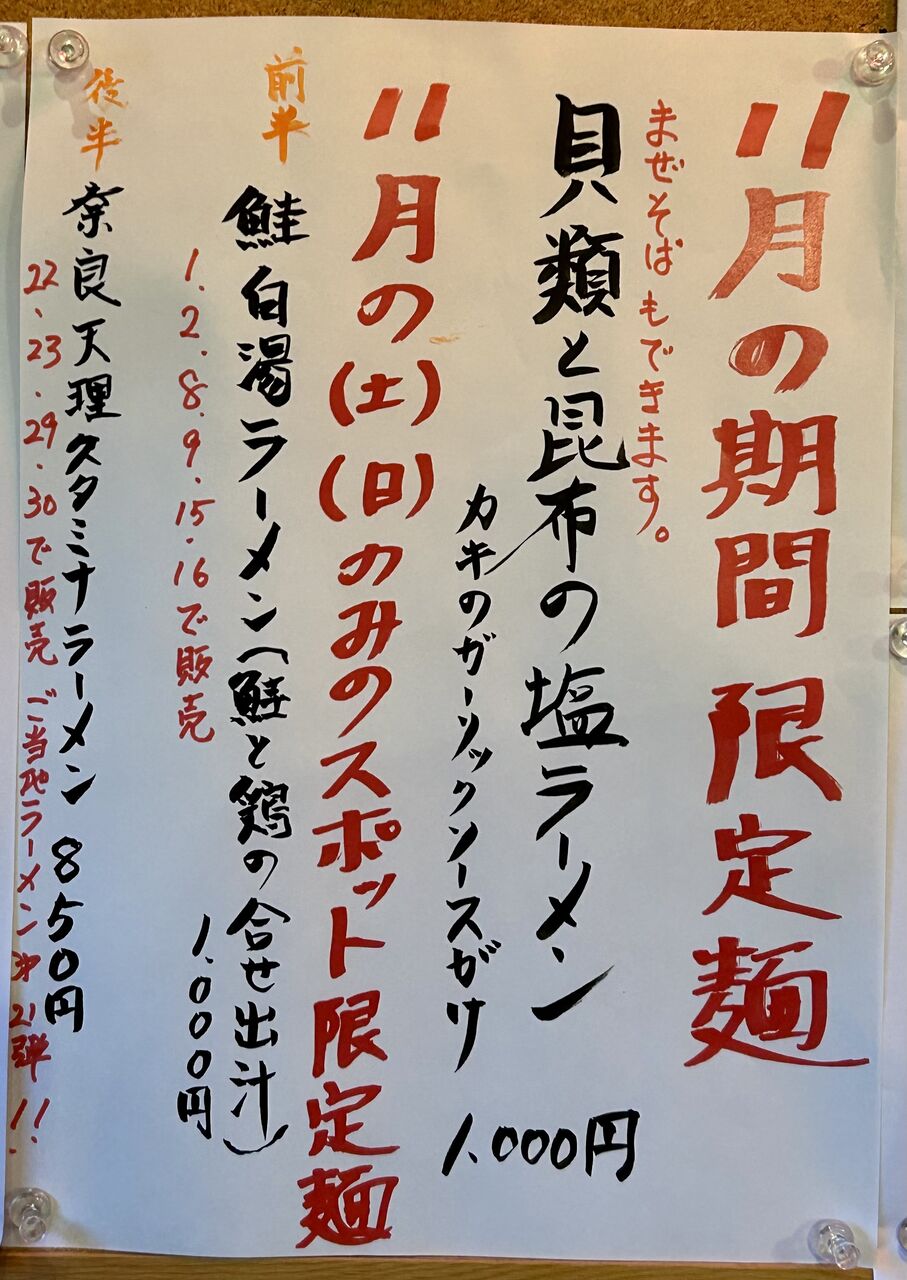 11月の期間限定麺
まぜそばもできます。
貝類と昆布の塩ラーメン
カキのガーリックソースがけ
1.000円
11月の(土)(日)のみのスポット限定麺
前半
鮭白湯ラーメン(鮭と鶏の合せ出汁)
1.000円
1.2.8.9.15.16で販売
後半
奈良天理スタミナラーメン 850円
22.23.29.30で販売 ご当地ラーメン第21弾!!